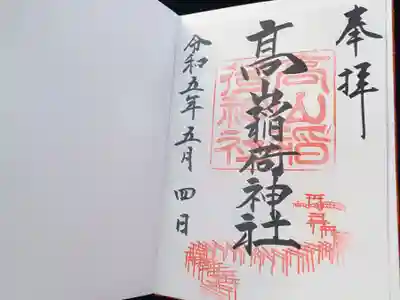 奉拝
高山稲荷神社
高山稲荷神社
令和五年五月四日